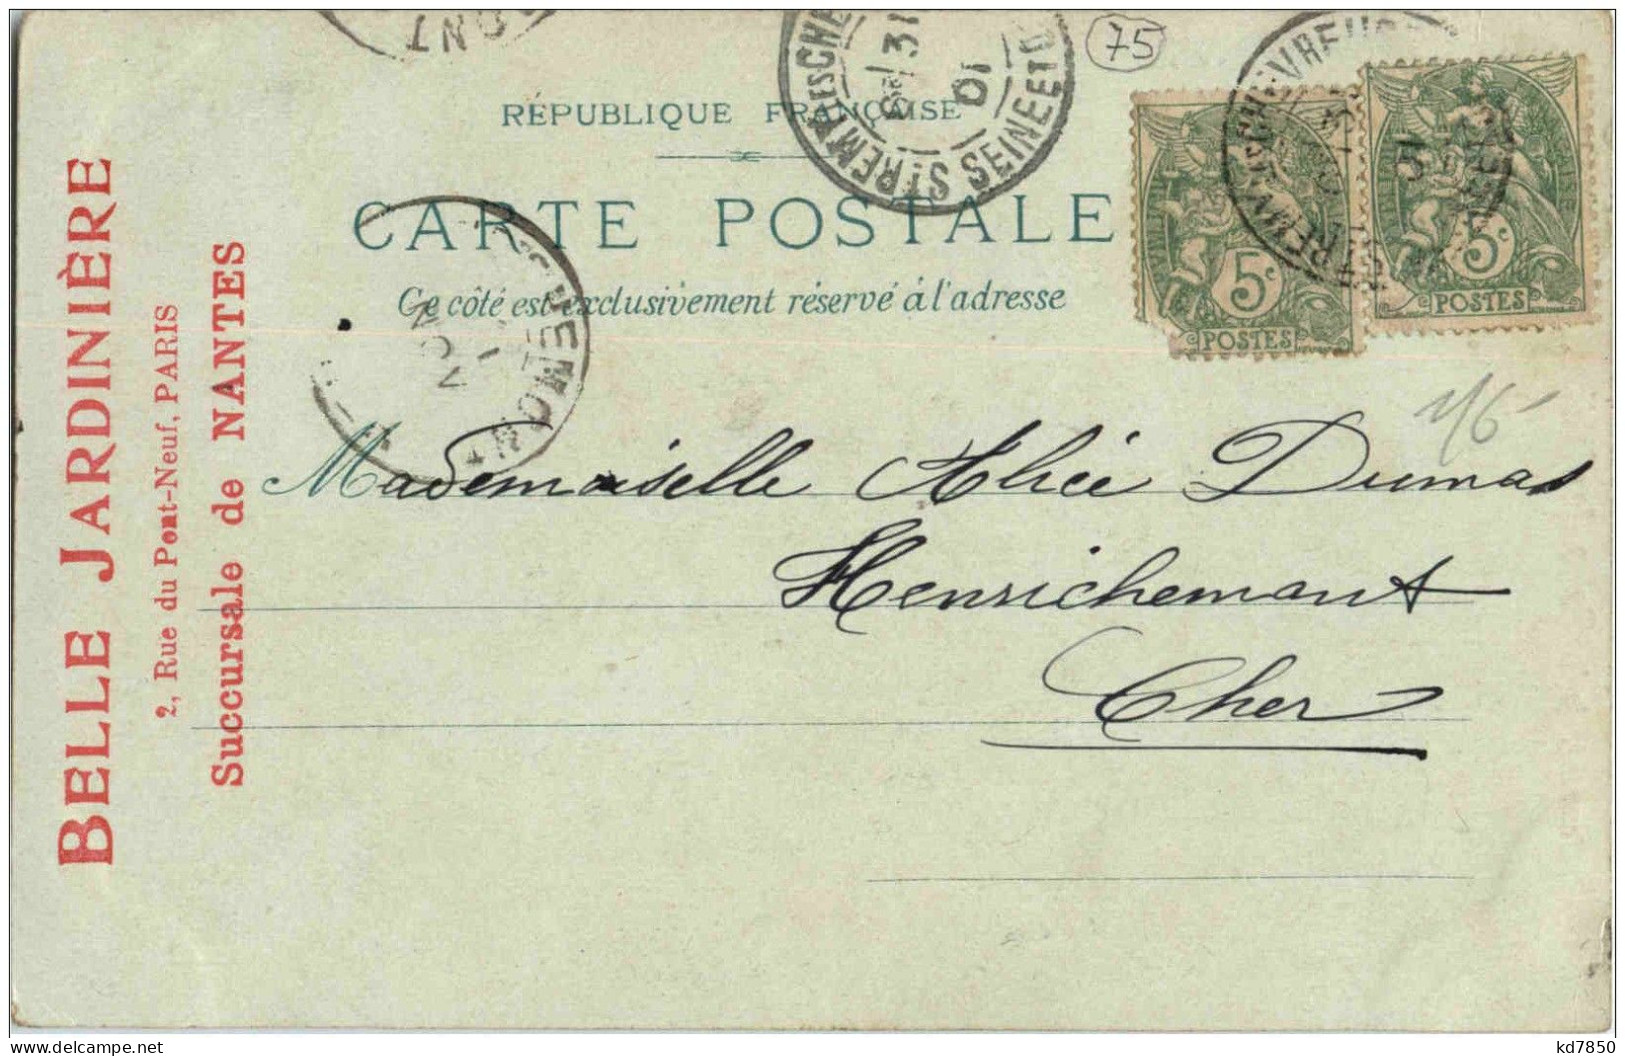 RÉPUBLIQUE FRANÇAISE
CARTE POSTALE
Ce côté est exclusivement réservé à l'adresse
BELLE JARDINIÈRE
2, Rue du Pont-Neuf, PARIS
Succursale de NANTES
75
ST REMY LES CHE
31
01
SEINE ET O
5c
POSTES
5c
POSTES
Mademoiselle Alice Dumas
Henrichemont
Cher
kd7850